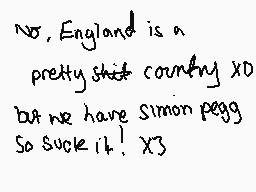 No, England is a
pretty shit country XD
but we have simon pegg
So suck it! X3